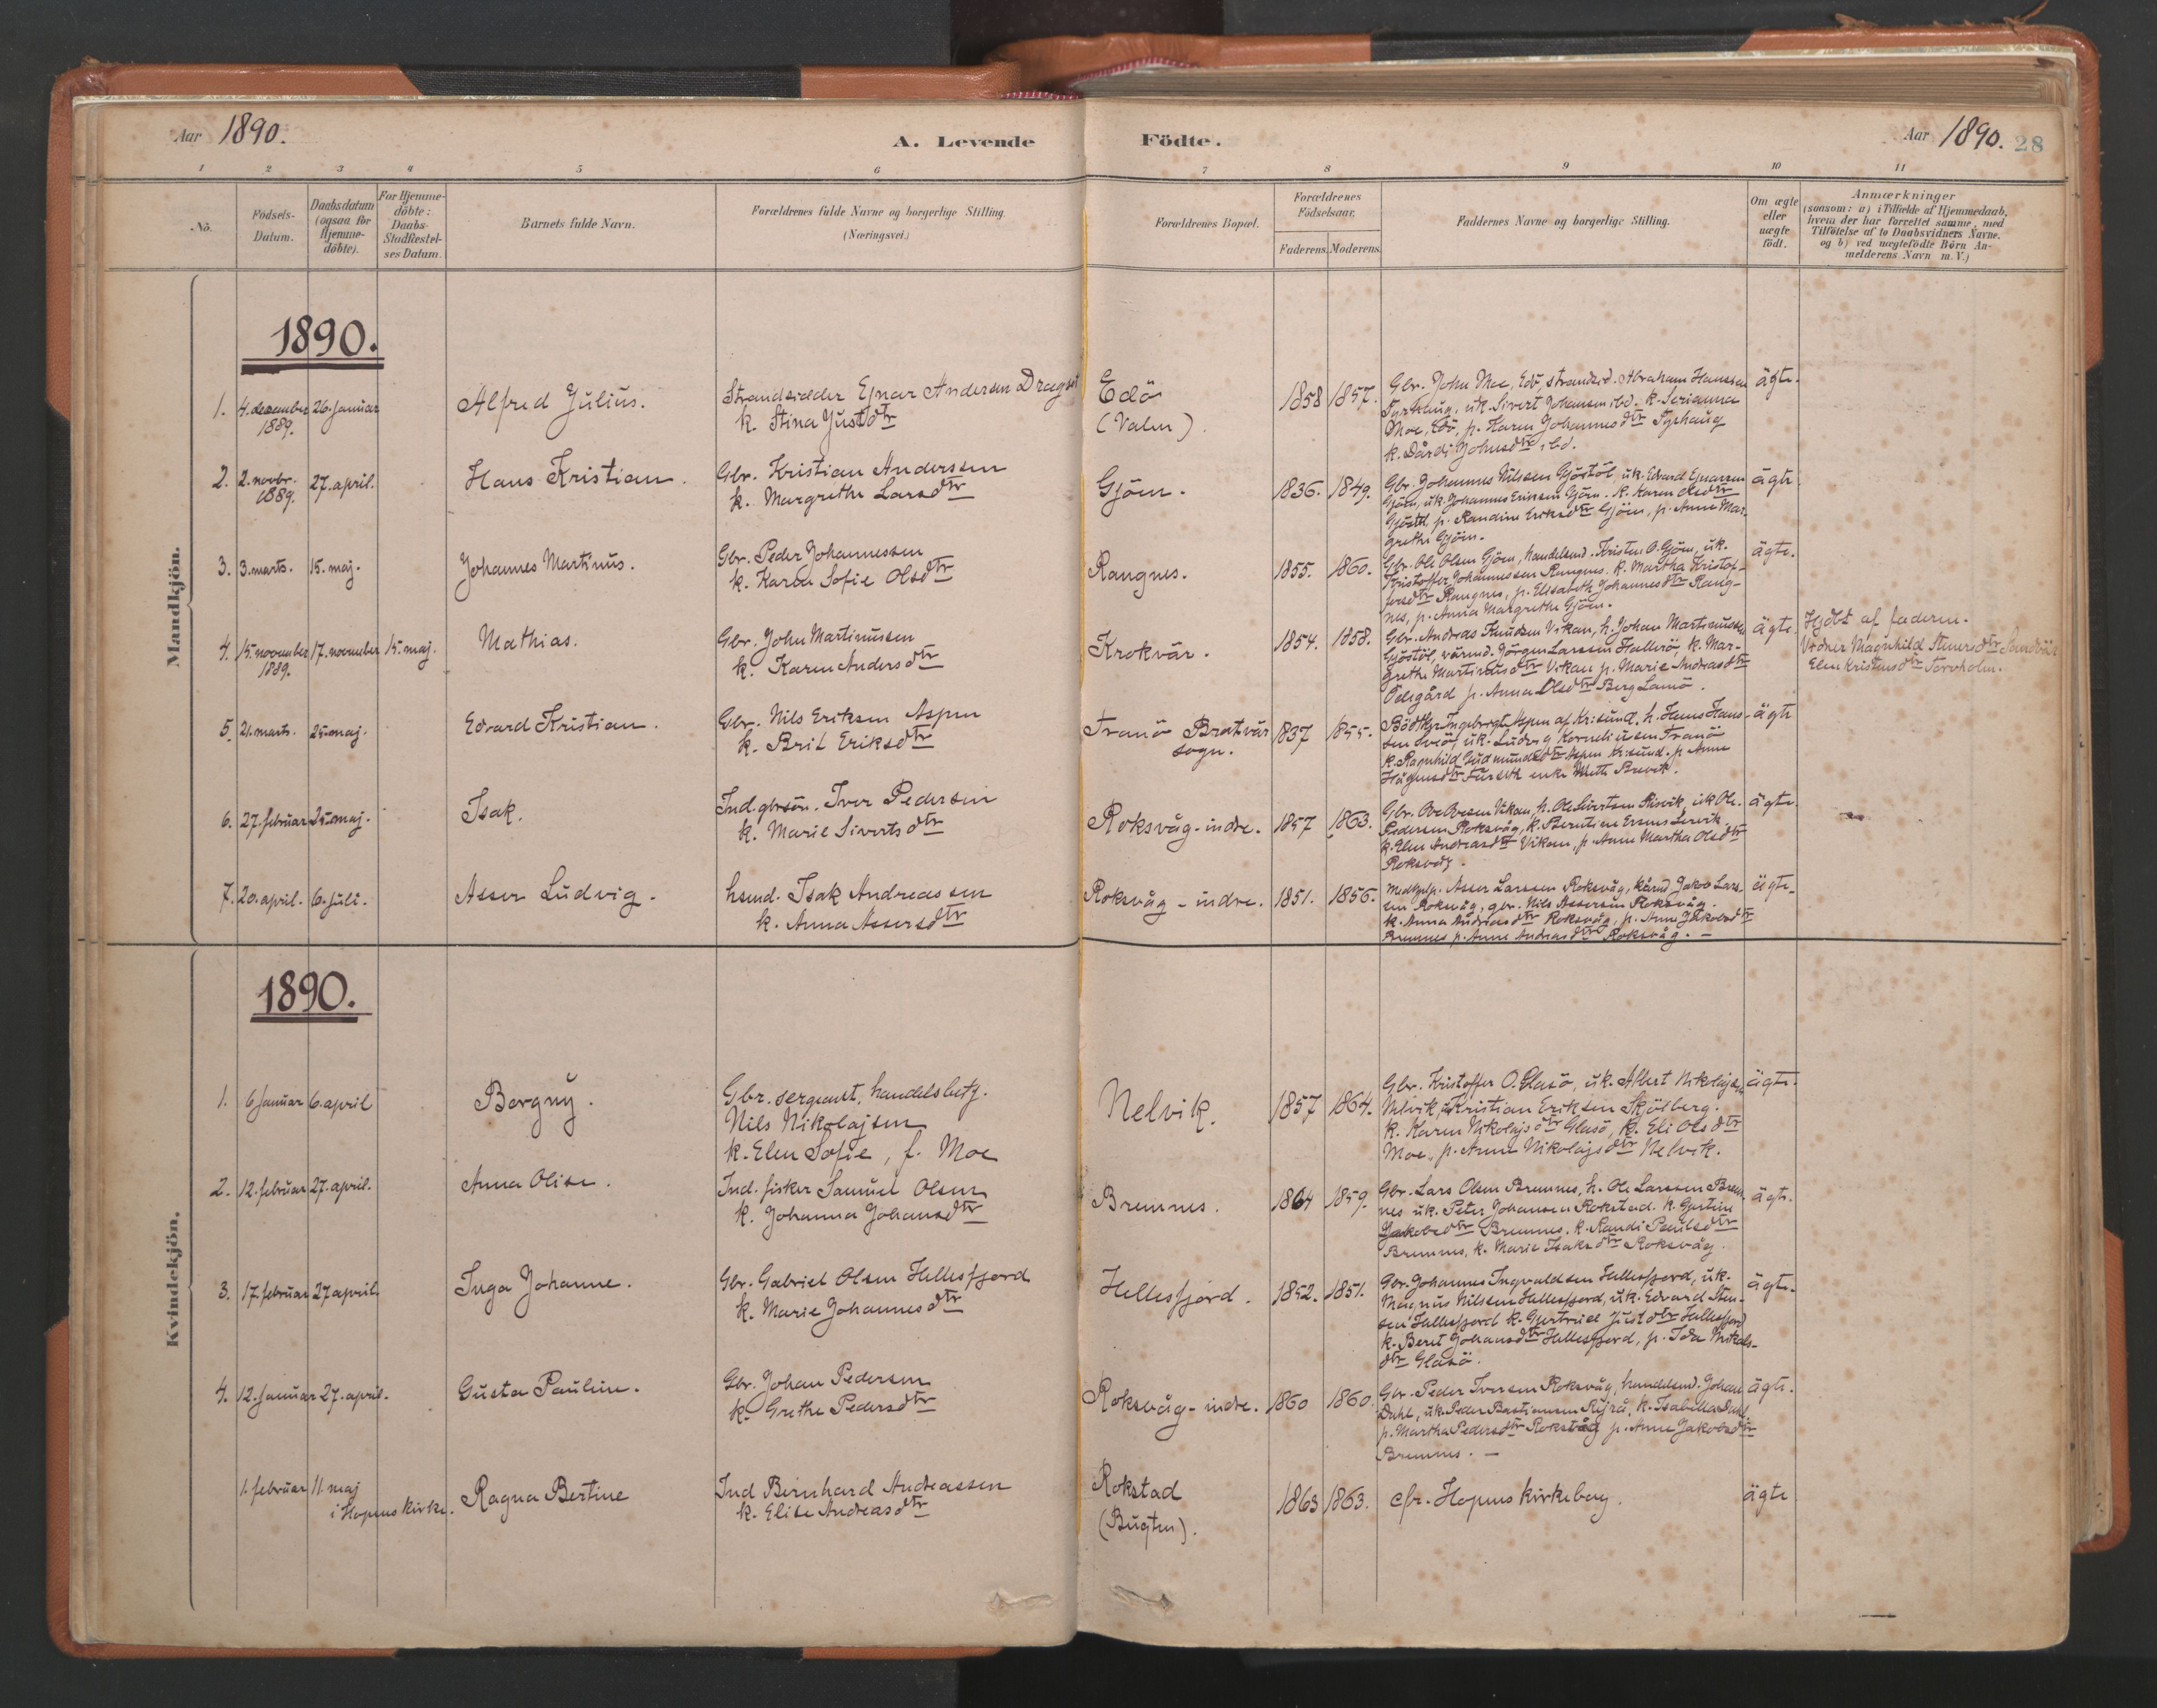 Aar 1890.
A. Levende Födte.
Aar 1890. 28
1 2 3 4 5 6 7 8 9 10 11
No.
Födsels-Datum.
Daabsdatum (ogsaa for Hjemme-döbte).
For Hjemme-döbte: Daabs-Stadfæstel-ses Datum.
Barnets fulde Navn.
Forældrenes fulde Navne og borgerlige Stilling. (Næringsvei.)
Forældrenes Bopæl.
Forældrenes Födselsaar.
Faderens. Moderens.
Faddernes Navne og borgerlige Stilling.
Om ægte eller uægte födt.
Anmærkninger
(saasom: a) i Tilfælde af Hjemmedaab,
hvem der har forrettet samme, med
Tilföielse af to Daabsvidners Navne.
og b) ved uægtefödte Börn An-
melderens Navn m. V.)
Mandkjön.
1890.
1. 4. december 1889. 26. januar
Alfred Julius.
Strandsidder Ejnar Andersen Dragset
k. Stina Justdtr
Edö
(Valen).
1858 1857.
Gbr. John Moe, Edö, strands. Abraham Hanssen
Tyrhaug, uk. Sivert Johansen ibd. k. Serianna
Moe, Edö, p. Karen Johannesdtr Tyrhaug
k. Dårdi Johnsdtr ibd.
ägte.
2. 2. novbr. 1889. 27. april.
Hans Kristian.
Gbr. Kristian Anderssen
k. Margrethe Larsdtr
Gjöen.
1836. 1849.
Gbr. Johannes Nilssen Gjöstöl, uk. Edvard Ejnarsen
Gjöen, uk. Johannes Eriksen Gjöen. k. Karen Olsdtr
Gjöstöl p. Randine Eriksdtr Gjöen, p. Anne Mar-
grethe Gjöen.
ägte.
3. 3. marts. 15. maj.
Johannes Martinus.
Gbr. Peder Johannessen
k. Karen Sofie Olsdtr
Rangnes.
1855. 1860.
Gbr. Ole Olsen Gjöen, handelsmd. Kristen O. Gjöen, uk.
Kristoffer Johannessen Rangnes. k. Martha Kristof-
fersdtr Rangnes, p. Elisabeth Johannesdtr Rang-
nes, p. Anna Margrethe Gjöen.
ägte.
4. 15. november 1889. 17. november 15. maj.
Mathias.
Gbr. John Martinussen
k. Karen Andersdtr
Krokvär.
1854. 1858.
Gbr. Andreas Knudsen Vikan, h. Johan Martinussen
Gjöstöl, Jörgen Larssen Hallerö, k. Mar-
grethe Martinusdtr Vikan p. Marie Andreasdtr
Ödegård p. Anna Olsdtr Berg
ägte.
Hjdbt af faderen.
Vidner Magnhild Steinersdtr Sandvik
Elen Kristensdtr Torvholm.
5. 21. marts. 25. maj.
Edvard Kristian.
Gbr. Nils Eriksen Aspen
k. Brit Eriksdtr
Tranö Bratvär
sogn.
1837 1855.
Bödker Ingebrigt Aspen af Krisund, h. Hans Hans-
sen uk. Ludvig Korneliusen Tranö
k. Ragnhild Gudmundsdtr Aspen Krisund. p. Anne
Hågensdtr Furseth enke Mette Brevik.
ägte
6. 27. februar 25. maj.
Isak.
Ind. gbrsön. Iver Pedersen
k. Marie Sivertsdtr
Roksvåg-indre.
1857 1863.
Gbr. Ove Ovesen Vikan, h. Ole Sivertsen Risvik, uk Ole
Pedersen Roksvåg, k. Berntine Lervik
k. Elen Andreasdtr Vikan, p. Anne Martha Olsdtr
Roksvåg.
ägte.
7. 20. april. 6. juli.
Asser Ludvig.
hsmd. Isak Andreassen
k. Anna Assersdtr
Roksvåg - indre.
1851. 1856.
Asser Larssen Roksvåg, Jakob Lars-
sen Roksvåg, gbr. Nils Asserssen Roksvåg.
k. Anna Andreasdtr Roksvåg, p. Anne Jakobsdtr
Bremnes p. Anne Andreasdtr Roksvåg. -
ägte.
Kvindekjön.
1890.
1. 6 januar 6. april
Bergny.
Gbr. sergeant, handelsbetj.
Nils Nikolajsen
k. Elen Sofie, f. Moe
Nelvik.
1857 1864.
Gbr. Kristoffer O. Glasö, uk. Albert Nikolajsen
Nelvik, uk Kristian Eriksen Skjölberg.
k. Karen Nikolajsdtr Glasö, k. Eli Olsdtr
Moe, p. Anne Nikolajsdtr Nelvik.
ägte.
2. 12. februar 27. april.
Anna Olise.
Ind. fisker Samuel Olsen
k. Johanna Johansdtr
Bremnes.
1864 1859.
Gbr. Lars Olsen Bremnes, h. Ole Larssen Brem-
nes uk. Peter Johansen Rokstad. k. Gjertine
Jakobsdtr Bremnes. k. Randi Paulsdtr
Bremnes, k. Marie Isaksdtr Roksvåg.
ägte.
3. 17. februar 27 april.
Inga Johanne.
Gbr. Gabriel Olsen Hellesfjord
k. Marie Johannesdtr
Hellesfjord.
1852. 1851.
Gbr. Johannes Ingvaldsen Hellesfjord, uk.
Magnus Nilssen Hellesfjord, uk. Edvard Sten-
sen Hellesfjord k. Gjertrud Justdtr Hellesfjord
k. Berit Johansdtr Hellesfjord, p. Ida Nikolai-
dtr Glasö.
ägte.
4. 12. januar 27. april.
Gusta Pauline.
Gbr. Johan Pedersen
k. Grethe Pedersdtr
Roksvåg - indre.
1860 1860.
Gbr. Peder Iversen Roksvåg, handelsmd. Johan
Dahl, uk. Peder Bastiansen k. Isabella Dahl
p. Martha Pedersdtr Roksvåg p. Anne Jakobsdtr
Bremnes. -
ägte.
1. februar 11. maj
i Hopens kirke.
Ragna Bertine
Ind Bernhard Andreassen
k. Elise Andreasdtr
Rokstad
(Bugten).
1863 1863.
cfr. Hopens kirkebog.
ägte